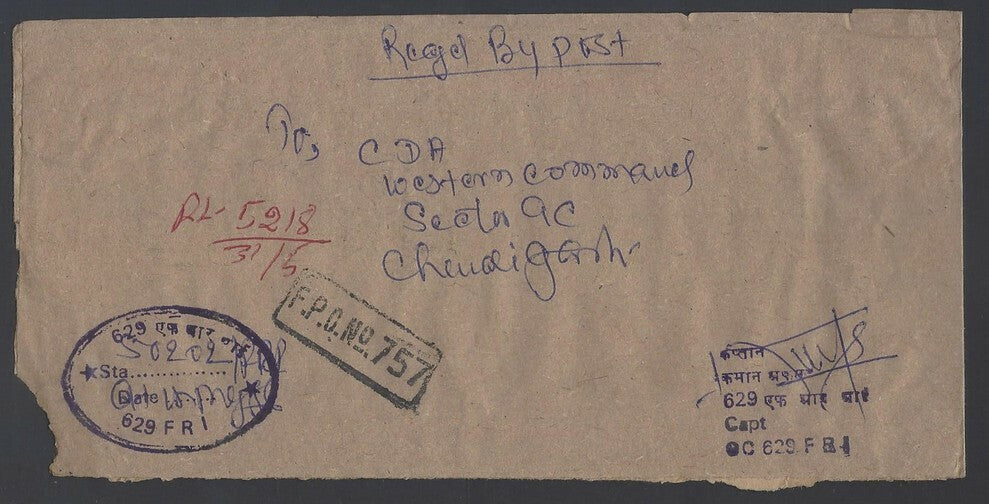 Regd By post
To,
CDA
western command
Sector 9C
Chandigarh
RL- 5218
31/5
F.P.O. No. 757
629 एफ आर आई
50202
Sta..............
Date
629 F R I
कप्तान
कमान
629 एफ आर आई
Capt
OC 629 F R I